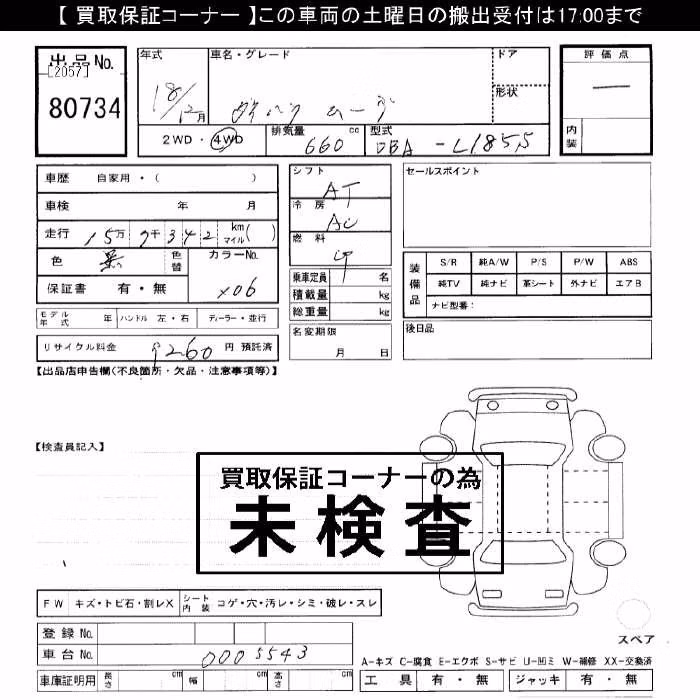 【 買取保証コーナー 】この車両の土曜日の搬出受付は17:00まで
出品No.
[2057]
80734
年式
車名・グレード
ドア
形状
評価点
18/12月
ダイハツ ムーヴ
内装
2WD・4WD
排気量 660 cc
型式 DBA-L185S
車歴 自家用・( )
車検 年 月
走行 15万 9千 3 4 2 km マイル( )
色 黒 色替
カラーNo. X06
保証書 有・無
シフト AT
冷房 AC
燃料
乗車定員 4 名
積載量 kg
総重量 kg
名変期限 月 日
セールスポイント
装備品
S/R 純A/W P/S P/W ABS
純TV 純ナビ 革シート 外ナビ エアB
ナビ型番:
後日品
モデル年式 年 ハンドル 左・右 ディーラー・並行
リサイクル料金 9260 円 預託済
【出品店申告欄(不良箇所・欠品・注意事項等)】
【検査員記入】
買取保証コーナーの為
未検査
FW キズ・トビ石・割レX シート内装 コゲ・穴・汚レ・シミ・破レ・スレ
登録No.
車台No. 0005543
車庫証明用 長さ cm 幅 cm 高さ cm
スペア
A-キズ C-腐食 E-エクボ S-サビ U-凹ミ W-補修 XX-交換済
工具 有・無 ジャッキ 有・無